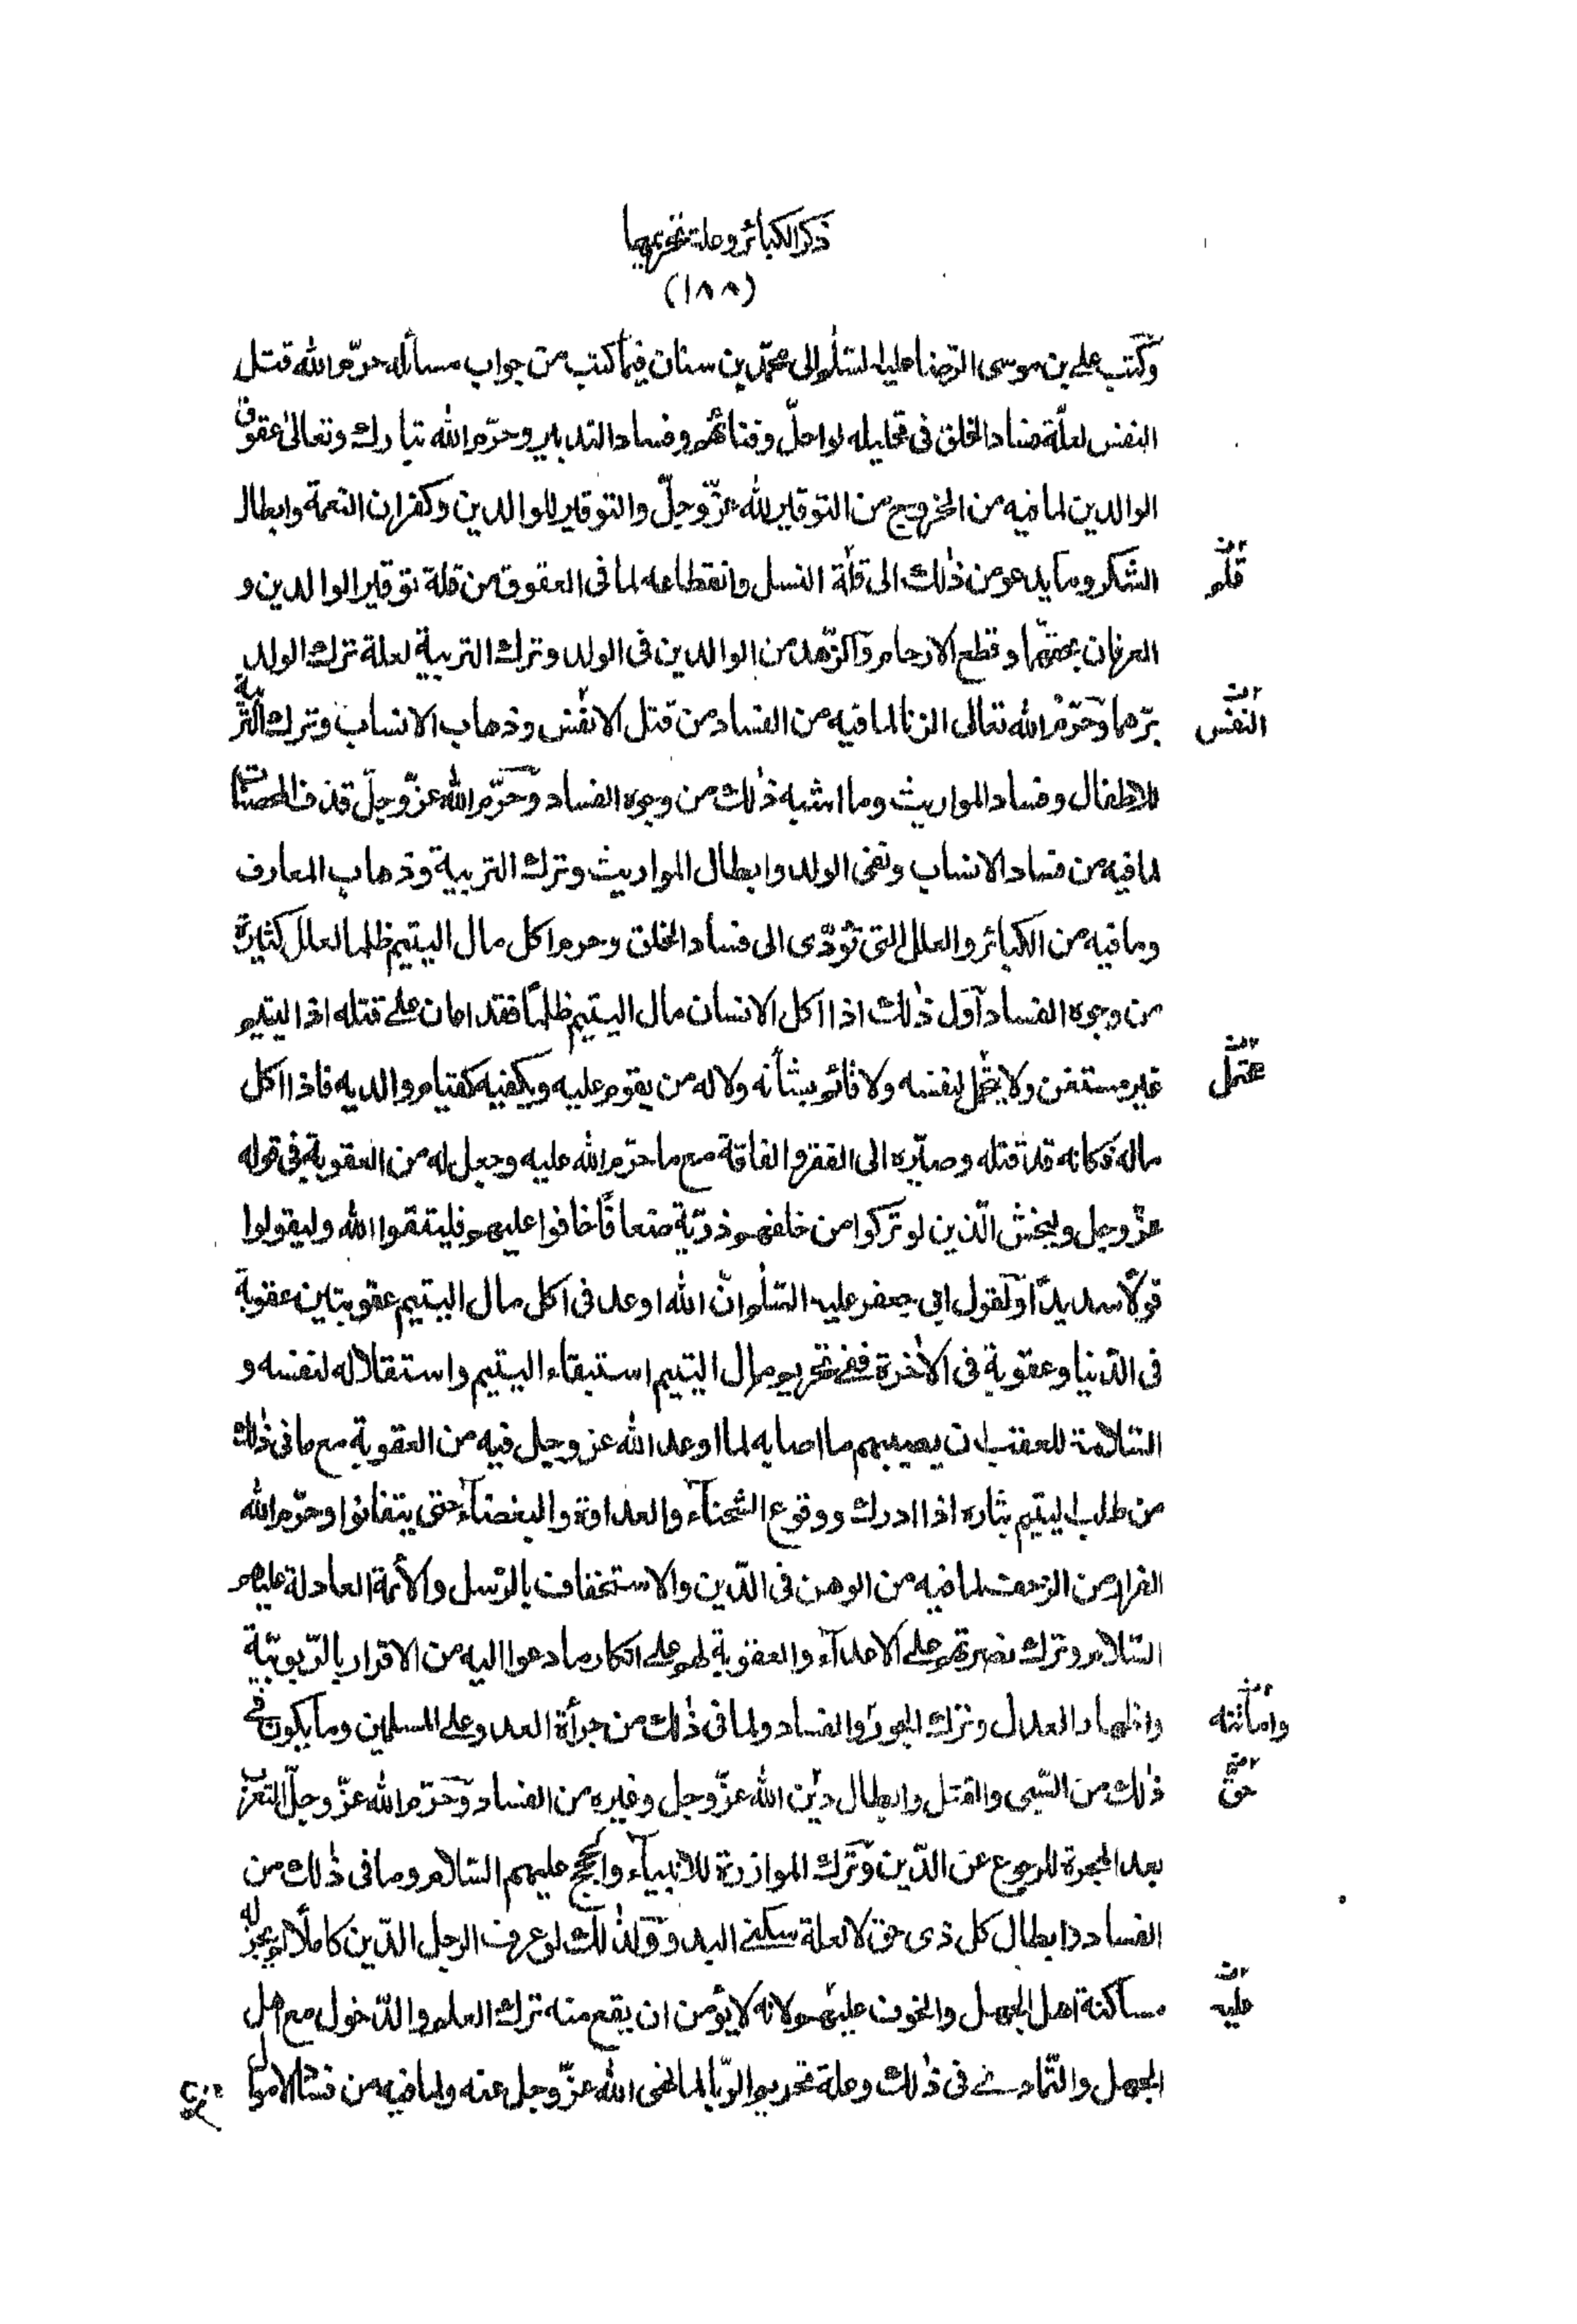 ذكر الكبائر وعلة تحريمها
(١٨٨)
وكتب علي بن موسى الرضا عليه السلام الى محمّد بن سنان فيما كتب من جواب مسائله حرّم الله قتل
النفس لعلّة فساد الخلق في تحليله لو احلّ وفنائهم وفساد التدبير وحرّم الله تبارك وتعالى عقوق
الوالدين لما فيه من الخروج من التوقير لله عزّ وجلّ والتوقير للوالدين وكفران النعمة وابطال
الشكر وما يدعو من ذٰلك الى قلّة النسل وانقطاعه لما في العقوق من قلة توقير الوالدين و
العرفان بحقهما وقطع الارحام والزّهد من الوالدين في الولد وترك التربية لعلة ترك الولد
برّهما وحرّم الله تعالى الزنا لما فيه من الفساد من قتل الانفس وذهاب الانساب وترك التربية
للاطفال وفساد المواريث وما اشبه ذٰلك من وجوه الفساد وحرّم الله عزّ وجلّ قذف المحصنات
لما فيه من فساد الانساب ونفي الولد وابطال المواريث وترك التربية وذهاب المعارف
وما فيه من الكبائر والعلل التي تؤدّى الى فساد الخلق وحرم اكل مال اليتيم ظلما لعلل كثيرة
من وجوه الفساد اوّل ذٰلك اذا اكل الانسان مال اليتيم ظلمًا فقد اعان على قتله اذ اليتيم
غير مستغن ولا يتحمل لنفسه ولا قائم بشأنه ولا له من يقوم عليه ويكفيه كقيام والديه فاذا اكل
ماله فكانه قد قتله وصيّره الى الفقر والفاقة مع ما حرّم الله عليه وجعل له من العقوبة في قوله
عزّ وجل وليخش الّذين لو تركوا من خلفهم ذرّيّة ضعافًا خافوا عليهم فليتقوا الله وليقولوا
قولًا سديدًا ولقول ابي جعفر عليه السّلام انّ الله اوعد في اكل مال اليتيم عقوبتين عقوبة
في الدّنيا وعقوبة في الاٰخرة ففي تحريم مال اليتيم استبقاء اليتيم واستقلاله لنفسه و
السّلامة للعقب ان يصيبهم ما اصابه لما اوعد الله عز وجل فيه من العقوبة مع ما في ذٰلك
من طلب اليتيم بثاره اذا ادرك ووقوع الشحناء والعداوة والبغضاء حتى يتفانوا وحرّم الله
الفرار من الزحف لما فيه من الوهن في الدّين والاستخفاف بالرّسل والأئمة العادلة عليهم
السّلام وترك نصرتهم على الاعداء والعقوبة لهم على انكار ما دعوا اليه من الاقرار بالرّبوبيّة
واظهار العدل وترك الجور والفساد ولما في ذٰلك من جرأة العدو على المسلمين وما يكون في
ذٰلك من السّبي والقتل وابطال دين الله عزّ وجل وغيره من الفساد وحرّم الله عزّ وجلّ التعرّب
بعد الهجرة للرجوع عن الدّين وترك الموازرة للانبياء والحجج عليهم السّلام وما في ذٰلك من
الفساد وابطال كل ذي حق لا لعلة سكنى البدو ولذٰلك لو عرف الرجل الدّين كاملًا لم يجز له
مساكنة اهل الجهل والخوف عليهم ولانه لا يؤمن ان يقع منه ترك العلم والدّخول مع اهل
الجهل والتّمادي في ذٰلك وعلة تحريم الرّبا لما نهى الله عزّ وجل عنه ولما فيه من فساد الاموال
قلّة
النفس
وامانته
حق
عليه